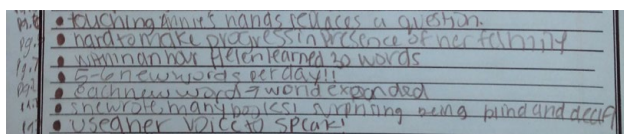 • touching Annie's hands replaces a question.
pg. • hard to make progress in presence of her family
pg. 7 • within an hour Helen learned 30 words
• 5-6 new words per day!!
• each new word → world expanded
• she wrote many books! being blind and deaf
• used her voice to speak!